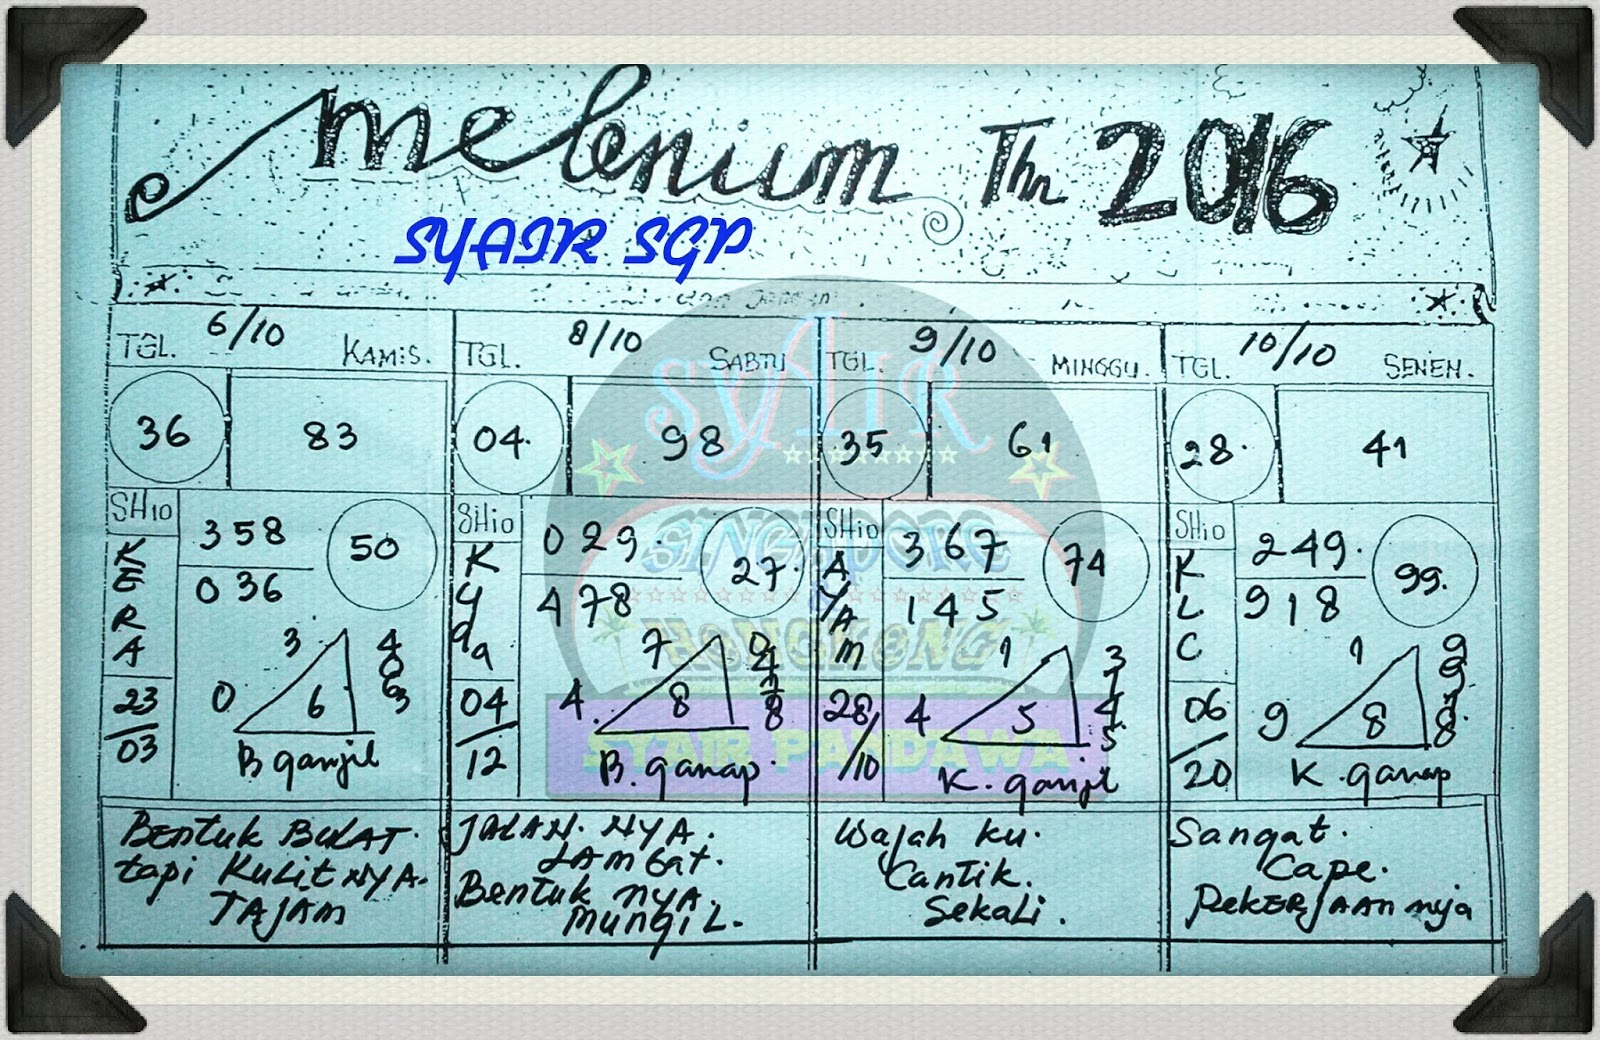 melenium Thn 2016
SYAIR SGP
dan
TGL. 6/10 KAMIS.
36 83
SHio
KERA
23
03
358
036
50
3
0
6
4
0
6
3
B ganjil
BENtuk BULAT.
tapi KuLitNYA.
TAJAM
TGL. 8/10 SABTU
04. 98
SHio
Kyda
04
12
029.
478
27.
7
4.
8
0
4
7
8
B. ganap.
JALAN. NYA.
LAMBat.
BENtuk NYA.
MUNGIL.
TGL. 9/10 MINGGU.
35 61
SHio
AYAM
28/
/10
367
145
74
1
4
5
3
7
4
5
K. ganjil
Wajah ku.
CANtiK.
SekaLi.
TGL. 10/10 SENEN.
28. 41
SHio
KLC
06
20
249.
918
99.
1
9
8
9
9
7
8
K. ganap
Sangat.
Cape.
PeKERJAAN nya
SYAIR
SINGAPORE
HONGKONG
SYAIR PANDAWA